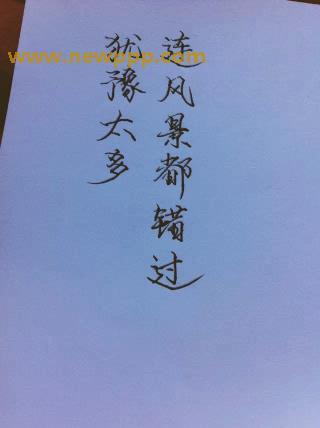 www.newppp.com
犹豫太多
连风景都错过